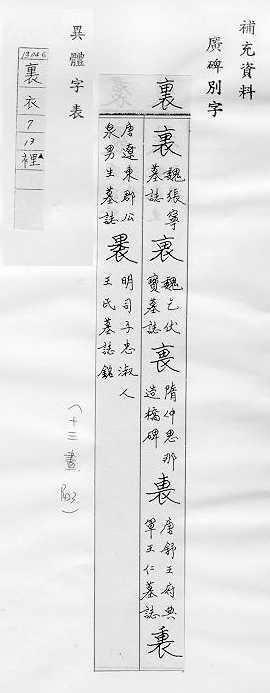 補充資料
廣碑別字
裏
裏 魏張寧墓誌
裏 魏乞伏寶墓誌
裏 隋仲思那造橋碑
裏 唐舒王府典軍王仁墓誌
裏
唐遼東郡公泉男生墓誌
裏 明司子忠淑人王氏墓誌銘
(十三畫
P403)
異體字表
裏
衣
7
13
裡